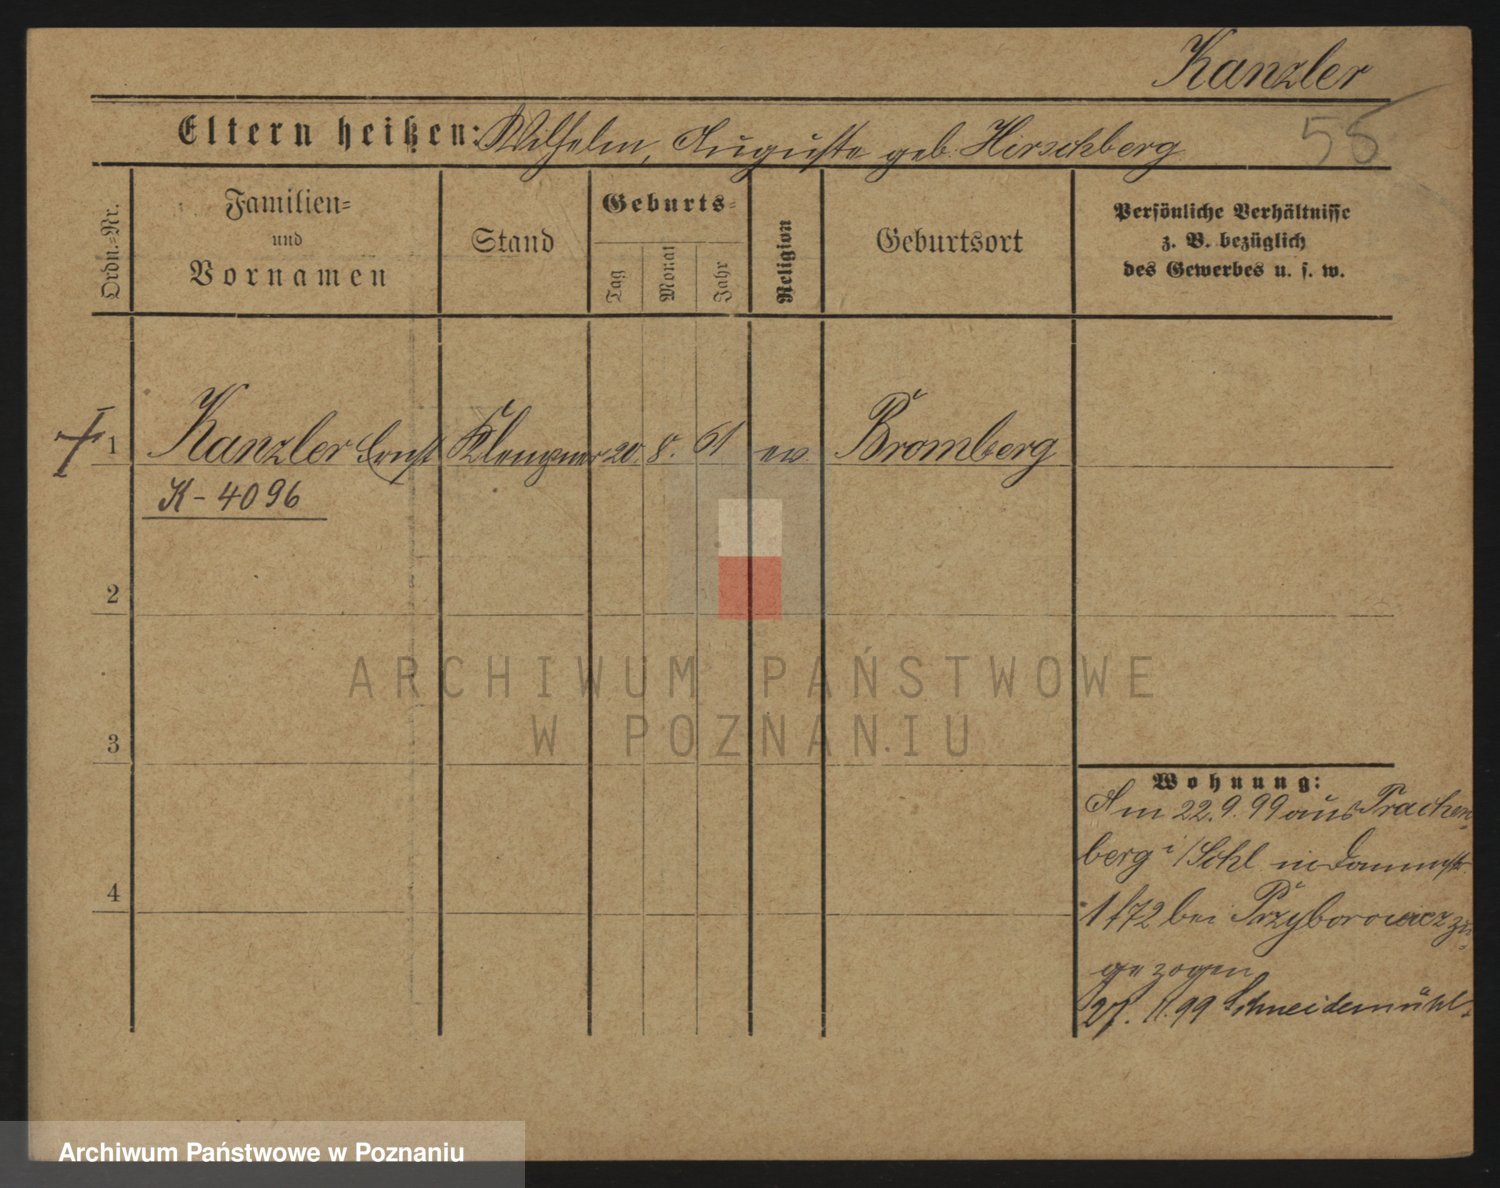 Kanzler
Eltern heißen: Wilhelm, Auguste geb. Hirschberg
55
Ordn.=Nr.
Familien=
und
Vornamen
Stand
Geburts=
Tag
Monat
Jahr
Religion
Geburtsort
Persönliche Verhältnisse
z. B. bezüglich
des Gewerbes u. s. w.
1 Kanzler Ernst Klempner 20. 8. 61 ev. Bromberg
K-4096
2
ARCHIWUM PAŃSTWOWE
W POZNANIU
3
Wohnung:
Am 22.9.99 aus Trachen=
berg i/Schl in Dammstr.
4
1/72 bei Przyborowicz zu=
gezogen
27. 11. 99 Schneidemühl.
Archiwum Państwowe w Poznaniu